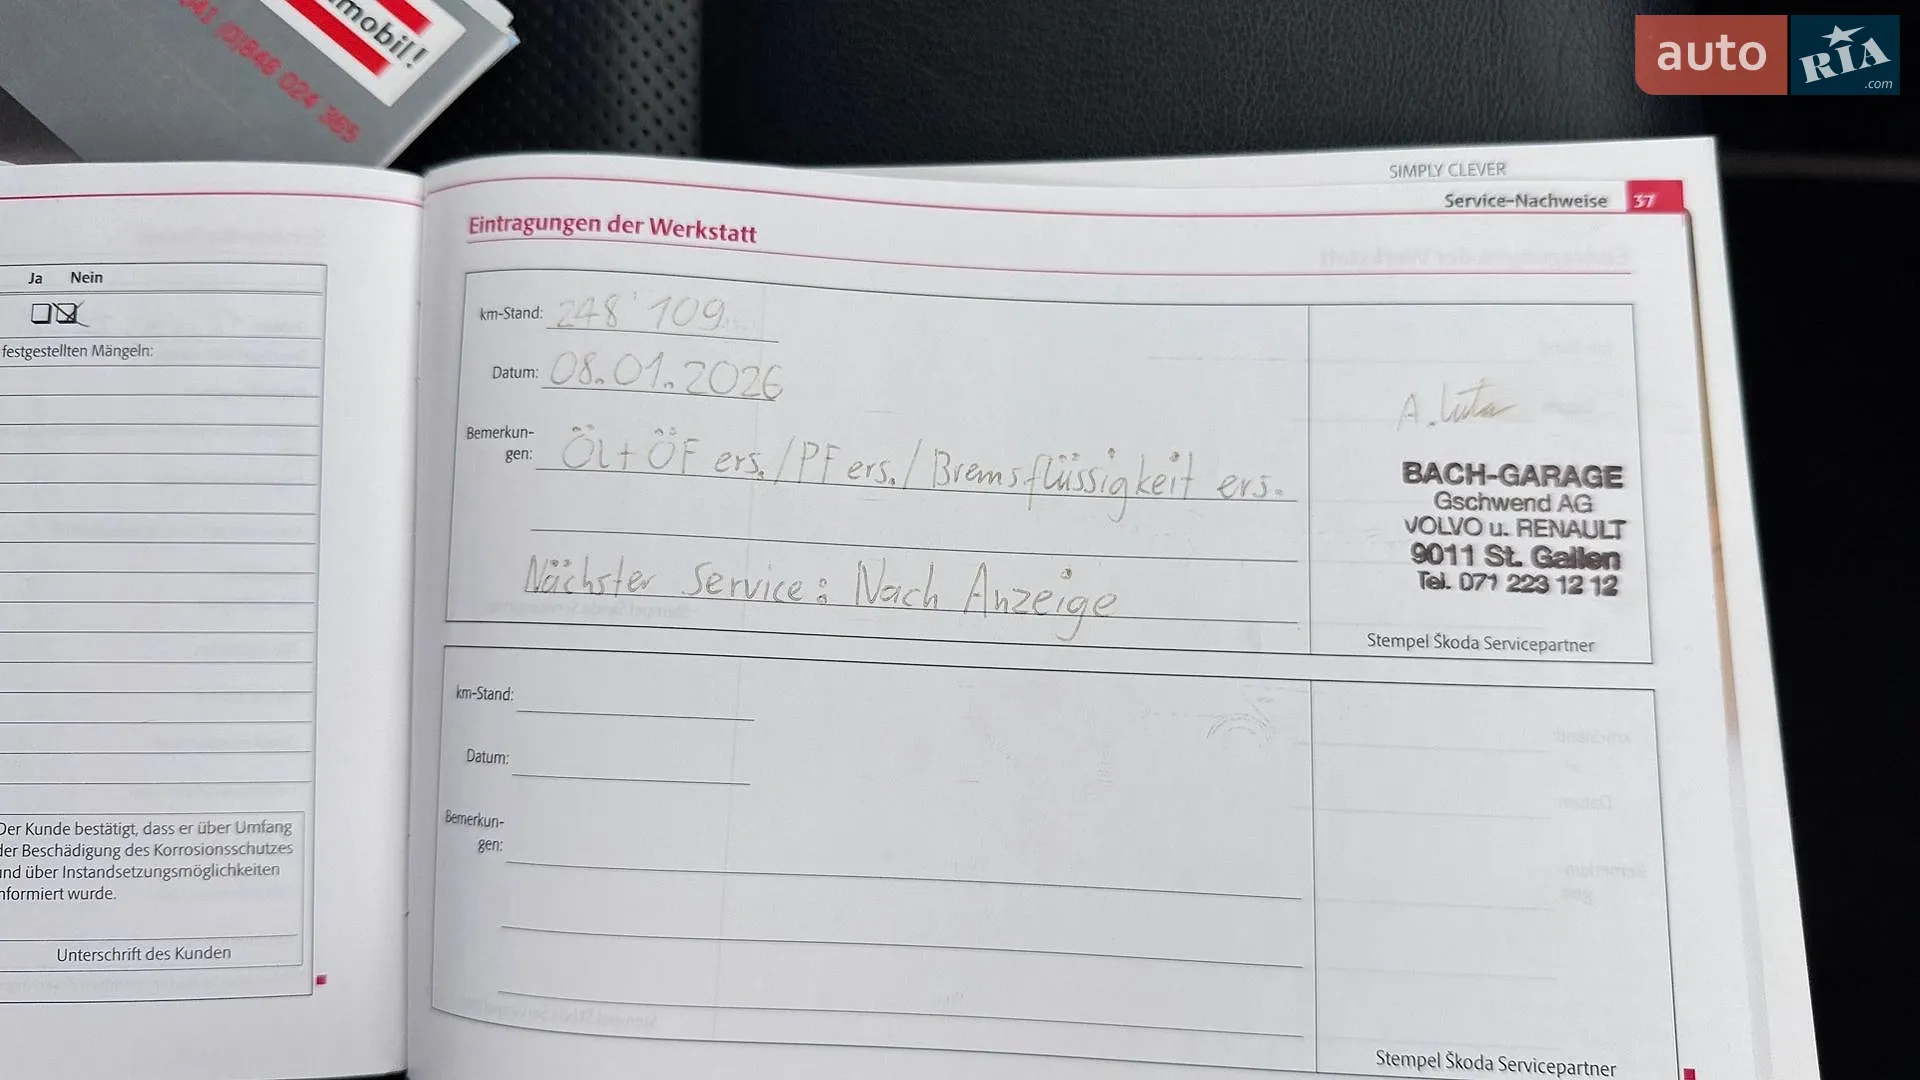 mobil!
(0)848 024 365
auto RIA .com
SIMPLY CLEVER
Service-Nachweise 37
Ja Nein
festgestellten Mängeln:
Der Kunde bestätigt, dass er über Umfang
der Beschädigung des Korrosionsschutzes
und über Instandsetzungsmöglichkeiten
nformiert wurde.
Unterschrift des Kunden
Eintragungen der Werkstatt
km-Stand: 248'109
Datum: 08.01.2026
Bemerkun-
gen: Öl + ÖF ers. / PF ers. / Bremsflüssigkeit ers.
Nächster Service: Nach Anzeige
BACH-GARAGE
Gschwend AG
VOLVO u. RENAULT
9011 St. Gallen
Tel. 071 223 12 12
Stempel Škoda Servicepartner
km-Stand:
Datum:
Bemerkun-
gen:
Stempel Škoda Servicepartner